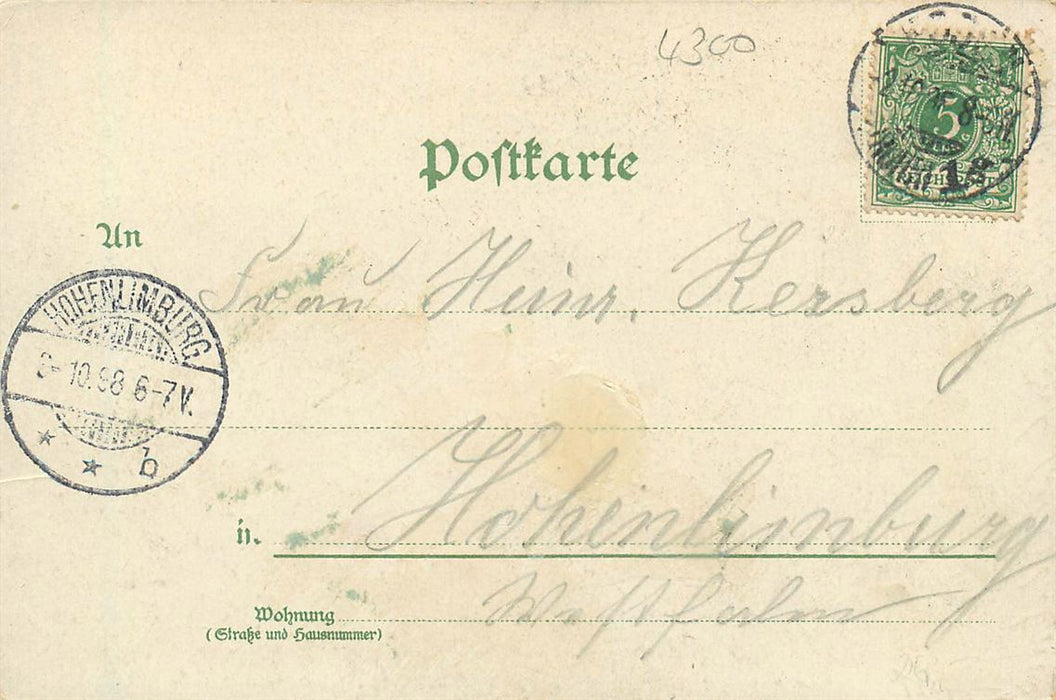 4300
Postkarte
5
An
Frau Heinr. Kersberg
HOHENLIMBURG
10.98 6-7V.
* * b
in
Hohenlimburg
Westfalen
Wohnung
(Straße und Hausnummer)